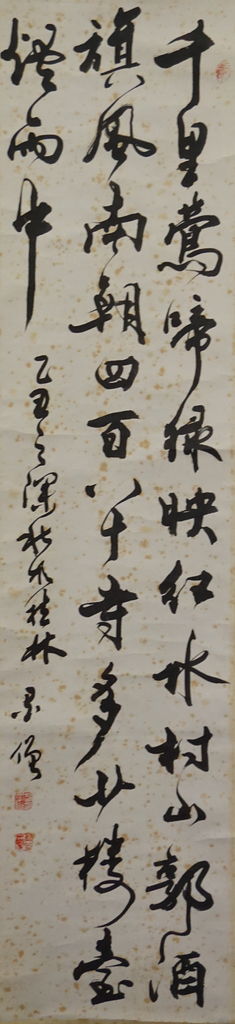 千里鶯啼绿映红水村山郭酒
旗風南朝四百八十寺多少楼臺
煙雨中
乙丑之深秋於桂林